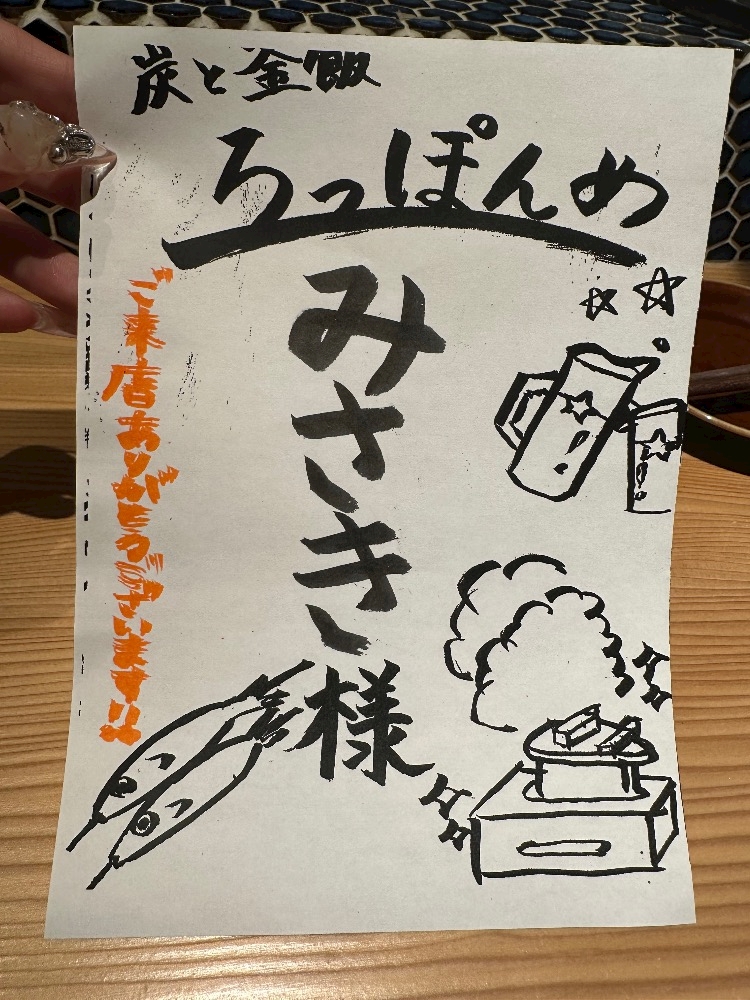 炭と釜飯
ろっぽんめ
みさき様
ご来店ありがとうございます!!